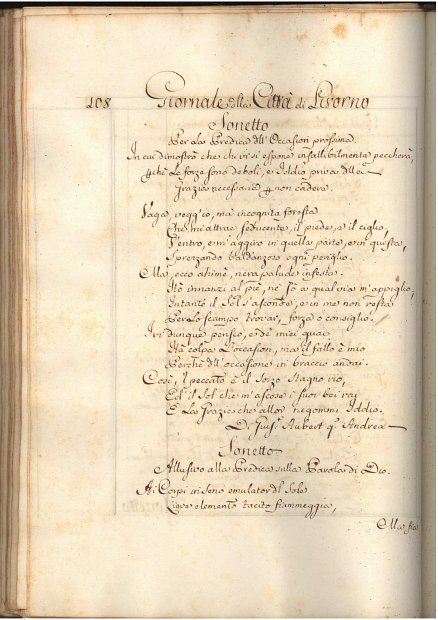 108 Giornale della Città di Livorno
Sonetto
Per la Predica dell' Occasion prossima.
In cui dimostrò che chi vi si espone infallibilmente peccherà,
le forze sono deboli, e Iddio priva della
Grazia necessaria non cadere.
Vaga vegg'io, ma incognita foresta
Che mi attrae seducente, il piede, e il ciglio,
V'entro, e m'aggiro in quella parte, e in questa,
Sprezzando baldanzoso ogni periglio.
Ma, ecco ahimè, nera palude infesta
Stò innanzi al piè, nè sò a qual via m'appiglio,
Intanto il Sol s'asconde, e in me non resta
Per lo scampo trovar, forza o consiglio.
Ivi dunque penso, e de' miei guai
Hà colpa l'occasion, ma il fallo è mio
Perchè dell'occasione in braccio andai.
Così, il peccato è il sozzo stagno rio,
Ed il Sol che m'ascose i suoi bei rai
E la Grazia che allor negommi Iddio.
Di Luigi Aubert q. Andrea
Sonetto
Allusivo alla Predica sulla Parola di Dio.
A' Corpi in seno emulator del Sole
Lieve elemento tacito fiammeggia,